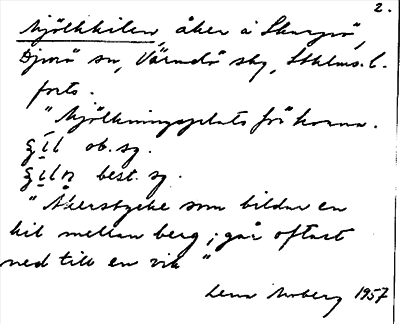 2.
Mjölkkilen, åker å Skarpö,
Djurö sn, Värmdö skg, Sthlms. l.
forts.
"Mjölkningsplats för korna.
gíl ob. sg.
gíln best. sg.
"Åkerstycke som bildar en
kil mellan berg; går oftast
ned till en vik"
Lena Moberg 1957